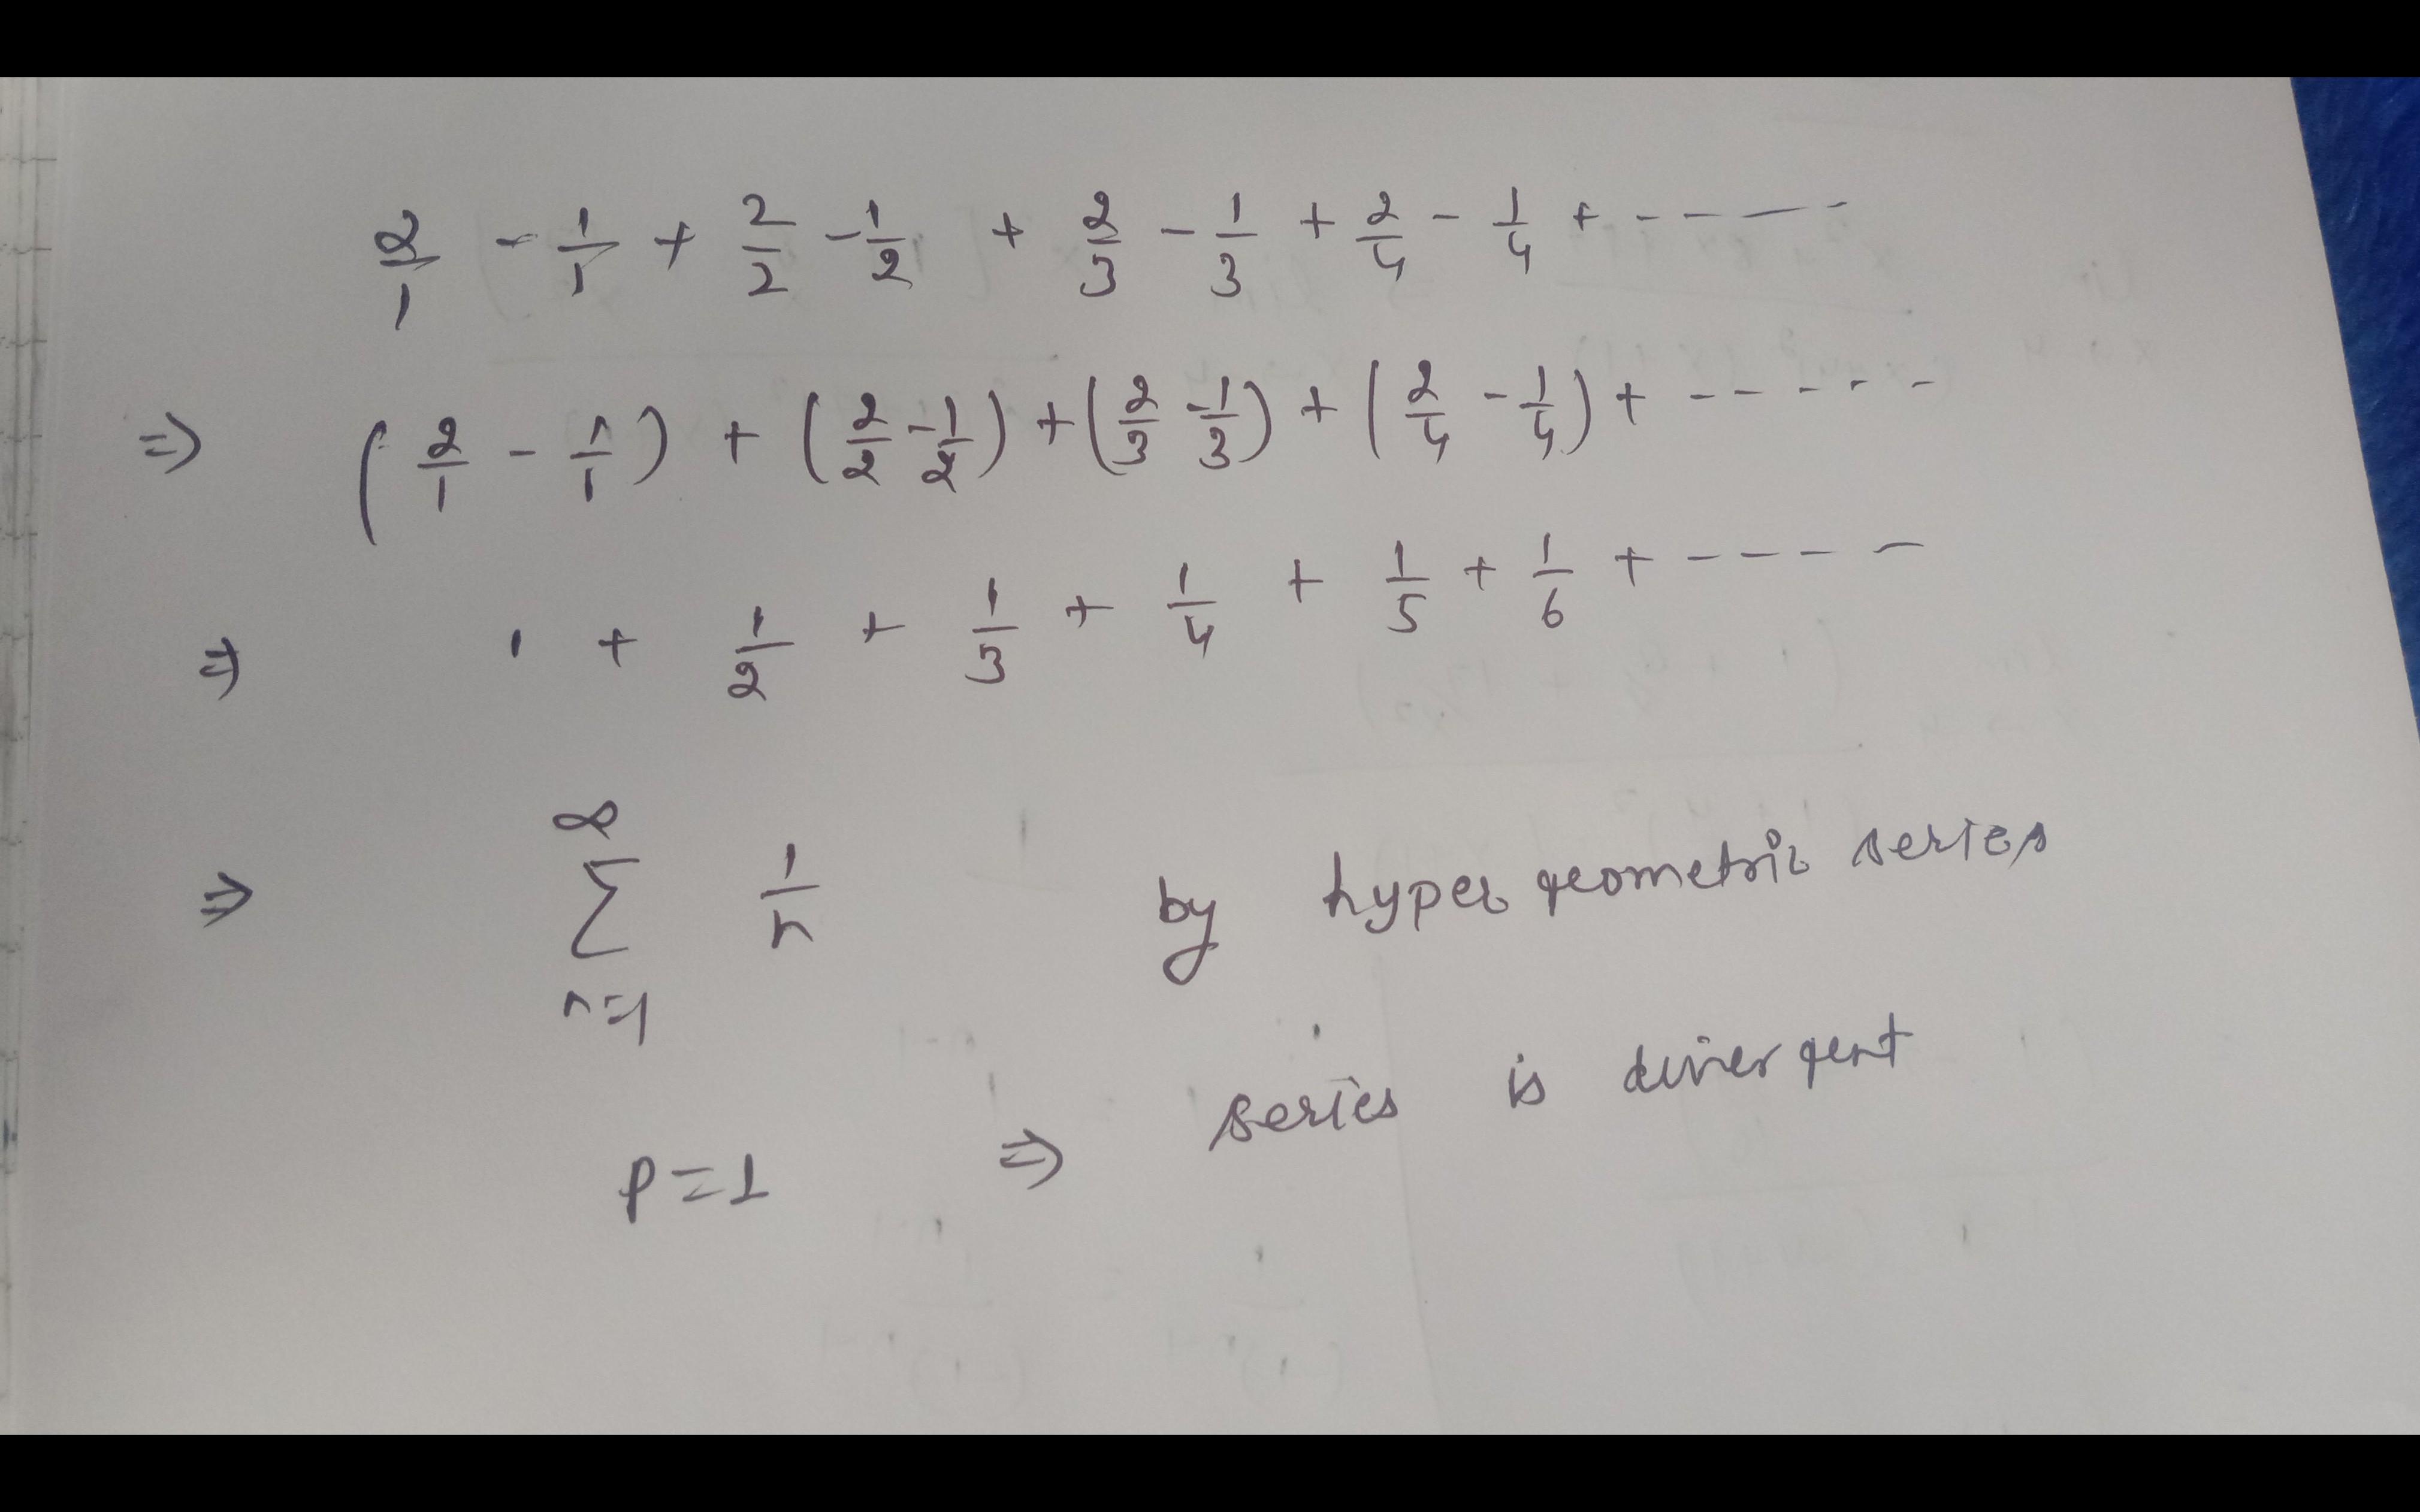 2/1 - 1/1 + 2/2 - 1/2 + 2/3 - 1/3 + 2/4 - 1/4 + - - - - -
⇒ (2/1 - 1/1) + (2/2 - 1/2) + (2/3 - 1/3) + (2/4 - 1/4) + - - - - - -
⇒ 1 + 1/2 + 1/3 + 1/4 + 1/5 + 1/6 + - - - -
⇒ ∞∑n=1 1/n by hyper geometric series
P=1 ⇒ series is divergent